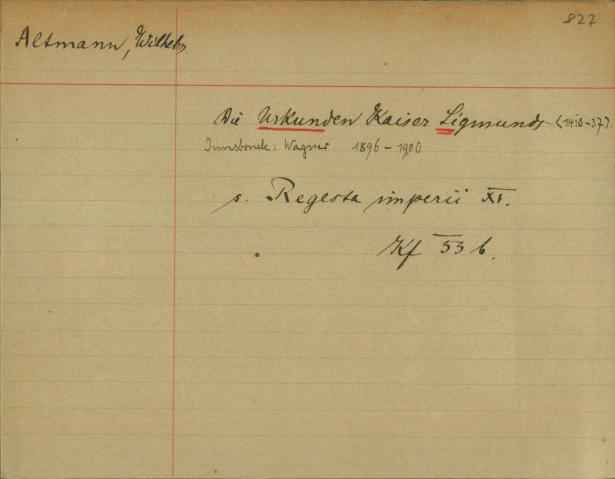 827
Altmann, Wilhelm
Die Urkunden Kaiser Sigmunds (1410-37).
Innsbruck: Wagner 1896-1900
s. Regesta imperii XI.
Kf 53 b.